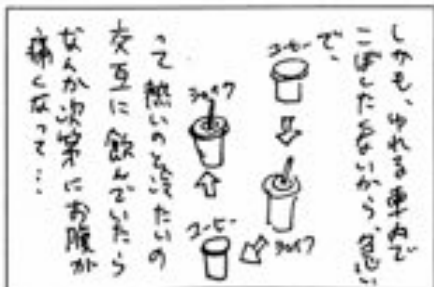 しかも、ゆれる車内で
こぼしたくないから、急い
で、
コーヒー
シェイク
コーヒー
シェイク
って熱いのと冷たいの
交互に飲んでいたら
なんか次第にお腹が
痛くなって…